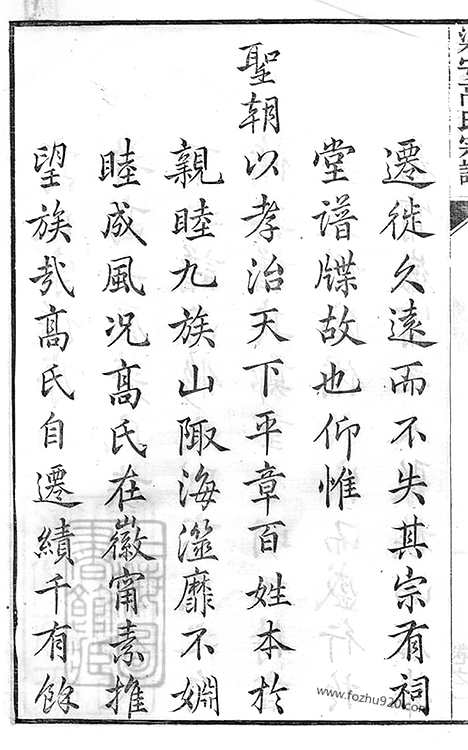 梁安高氏宗譜
遷徙久遠而不失其宗有祠
堂譜牒故也仰惟
聖朝以孝治天下平章百姓本於
親睦九族山陬海澨靡不婣
睦成風況髙氏在徽甯素推
望族哉髙氏自遷績千有餘
www.fozhu920.com